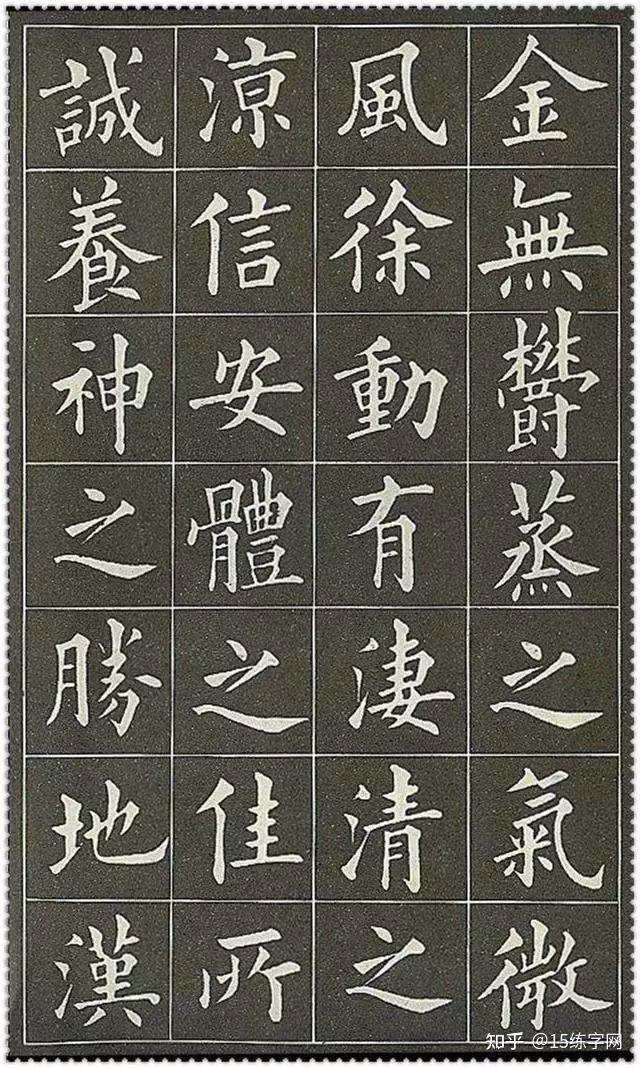 金無鬱蒸之氣微
風徐動有淒清之
涼信安體之佳所
誠養神之勝地漢
知乎 @15练字网